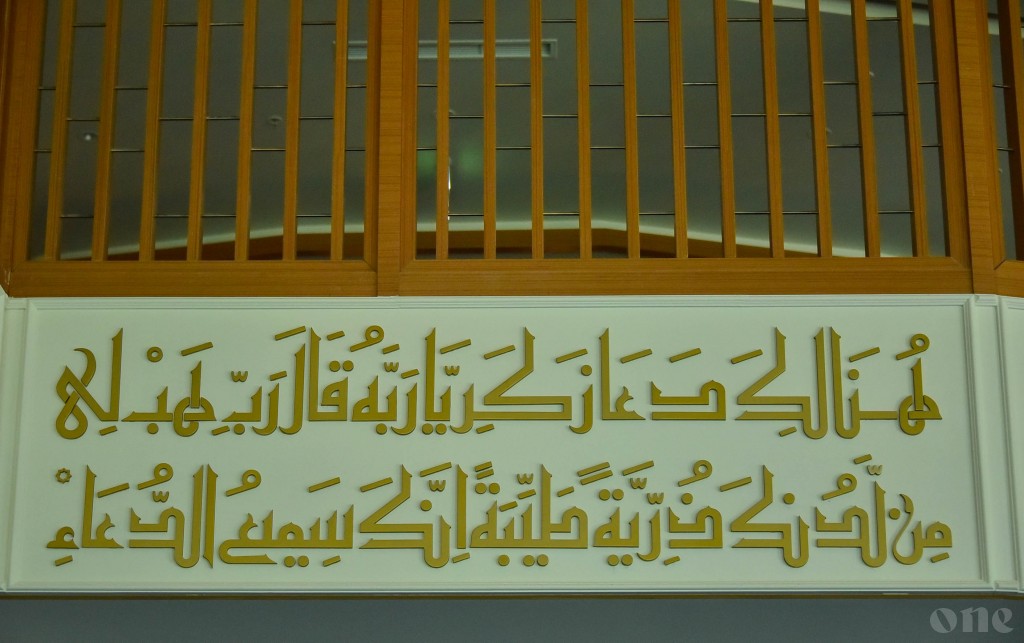 هُنَالِكَ دَعَا زَكَرِيَّا رَبَّهُ قَالَ رَبِّ هَبْ لِي
مِن لَّدُنكَ ذُرِّيَّةً طَيِّبَةً إِنَّكَ سَمِيعُ الدُّعَاءِ
one